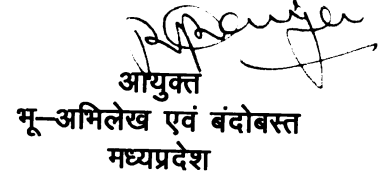 आयुक्त
भू–अभिलेख एवं बंदोबस्त
मध्यप्रदेश